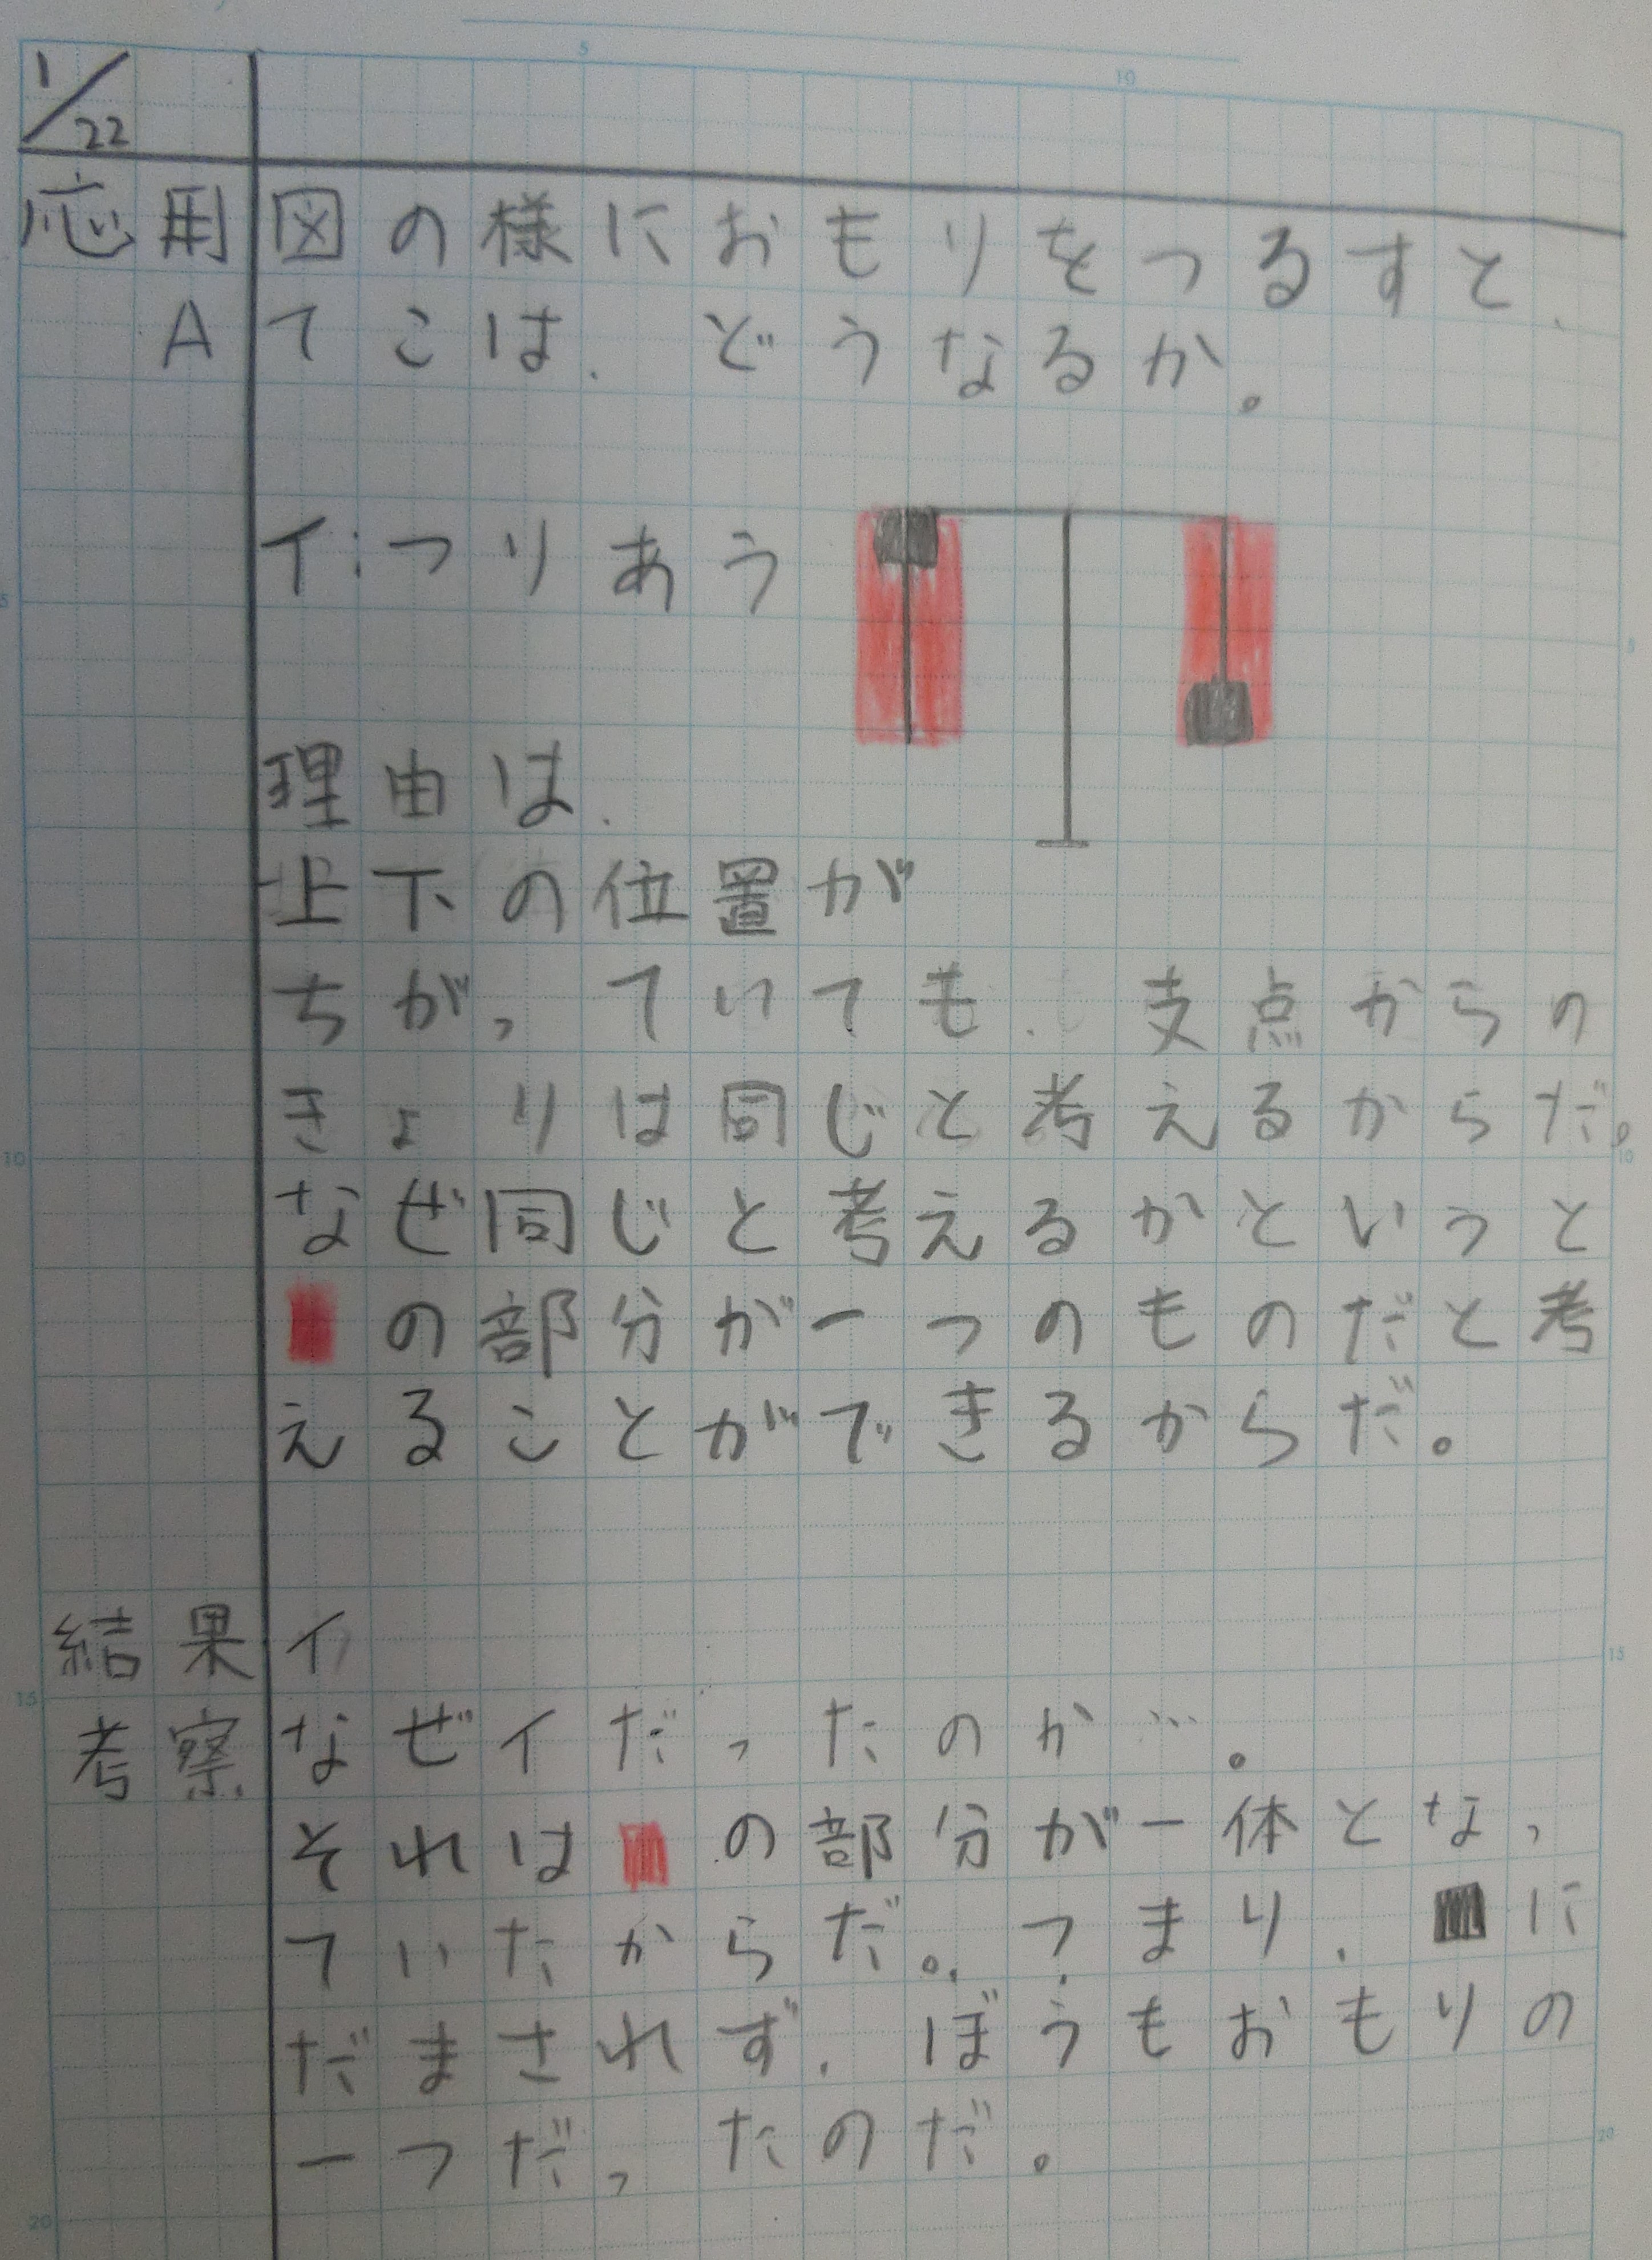 1/22
応用 図の様におもりをつるすと、
A てこは、どうなるか。
イ:つりあう
理由は、
上下の位置が
ちがっていても、支点からの
きょりは同じと考えるからだ。
なぜ同じと考えるかというと
の部分が一つのものだと考
えることができるからだ。
結果 イ
考察 なぜイだったのか…。
それは の部分が一体となっ
ていたからだ。つまり、 に
だまされず、ぼうもおもりの
一つだったのだ。